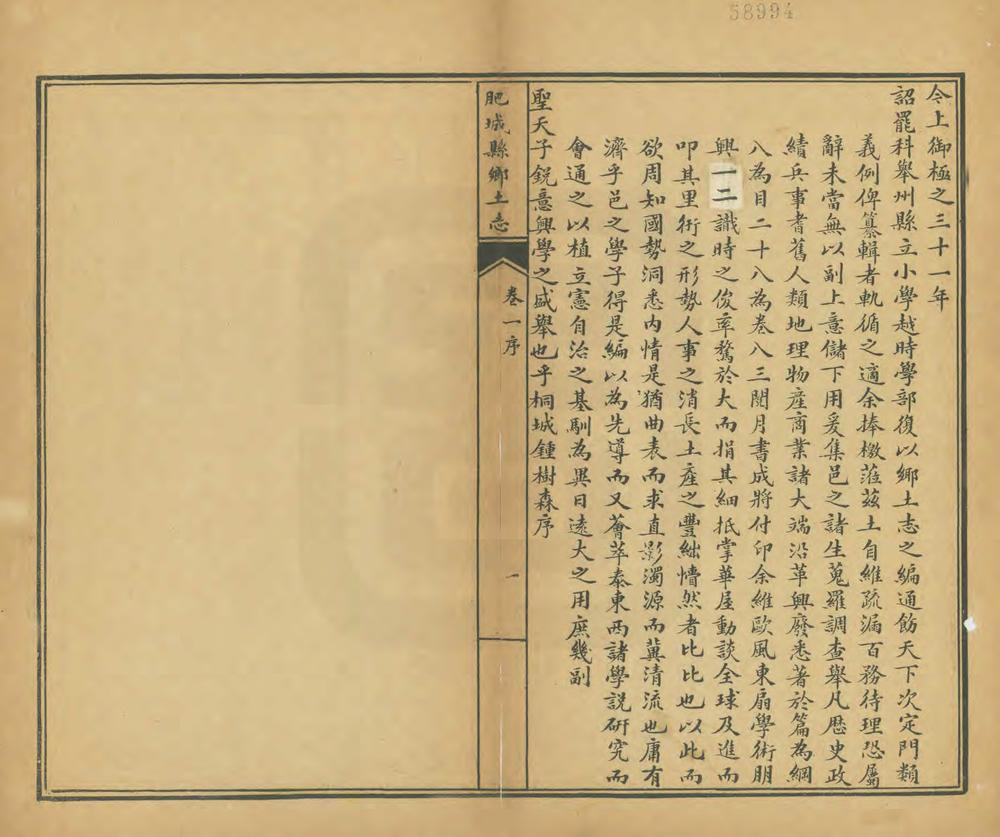 58994
今上御極之三十一年
詔罷科舉州縣立小學越時學部復以鄉土志之編通飭天下次定門類
義例俾纂輯者軌循之適余捧檄蒞茲土自維疏漏百務待理恐屬
辭未當無以副上意儲下用爰集邑之諸生蒐羅調查舉凡歷史政
績兵事耆舊人類地理物產商業諸大端沿革興廢悉著於篇為綱
八為目二十八為卷八三閱月書成將付印余維歐風東扇學術朋
興一二識時之俊率騖於大而捐其細抵掌華屋動談全球及進而
叩其里術之形勢人事之消長土產之豐絀懵然者比比也以此而
欲周知國勢洞悉內情是猶曲表而求直影濁源而冀清流也庸有
濟乎邑之學子得是編以為先導而又薈萃泰東西諸學說研究而
會通之以植立憲自治之基馴為異日遠大之用庶幾副
聖天子銳意興學之盛舉也乎桐城鍾樹森序
肥城縣鄉土志
卷一序
一